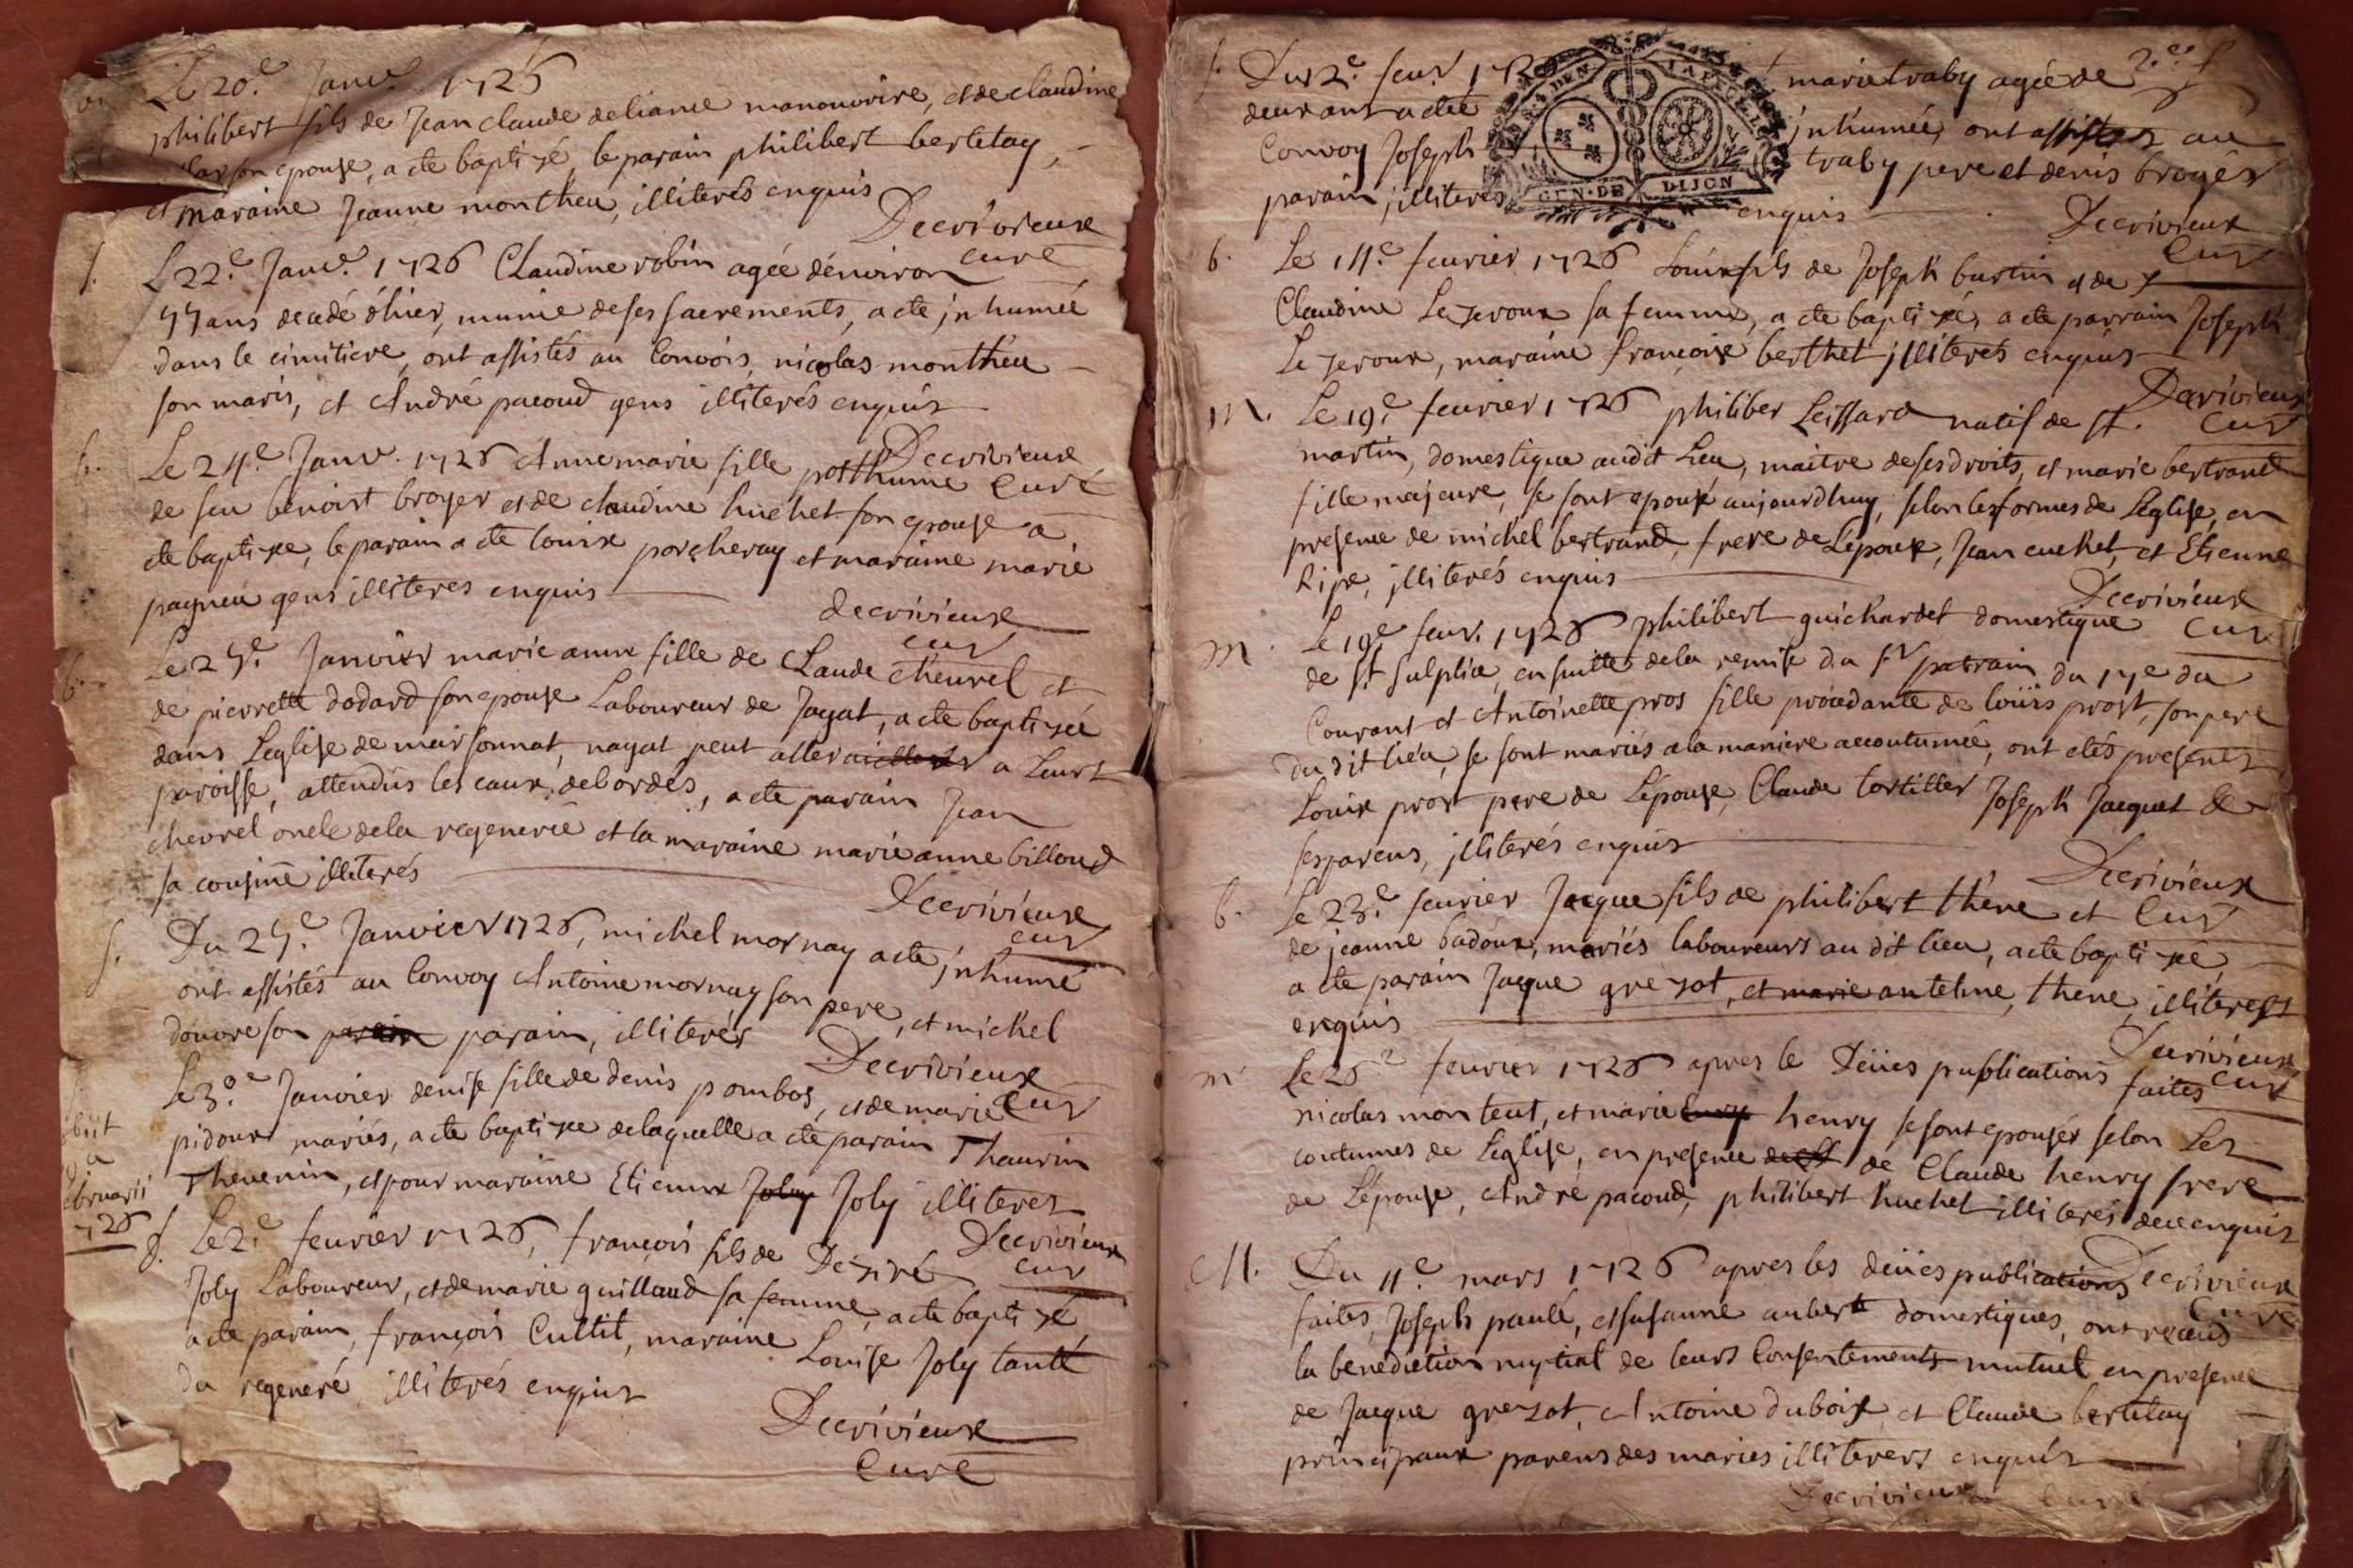 Le 20.e Janv.r 1726
philibert fils de Jean claude deliance manouvrire, et de claudine
son epouse, a ete baptizé, le parain philibert bertelay,
et maraine Jeanne montheu, illiterés enquis
Decrivieux
curé
s. L 22.e Janv.r 1726 Claudine robin agée d'environ
ans decedé d'hier, munie de ses sacrements, a ete jnhumée
dans le cimitiere, ont assistés au Convois, nicolas montheu
son maris, et André pacoud gens illiterés enquis
Decrivieux
Curé
b. Le 24.e Janv. 1726 Anne marie fille posthume
de feu benoist broyer et de claudine huchet son epouse a
ete baptizee, le parain a ete louis porcheray et maraine marie
pagneu gens illiteres enquis
decrivieux
cur
b. Le 25.e Janvier marie anne fille de Claude chevrel et
de pierrette dodard son epouse Laboureur de Jayat, a ete baptizée
dans Leglise de marsonnat, nayat peut aller a Leurs
paroisse, attendus les eaux debordés, a ete parain Jean
chevrel oncle de la regenerée et la maraine marie anne billoud
sa cousine illiterés
Decrivieux
cur
s. Du 25.e Janvier 1726, michel mornay a ete jnhumé
ont assistés au Convoy Antoine mornay son pere, et michel
donore son parain, illiterés
Decrivieux
Cur
Le 30.e Janvier denise fille de denis pombos, et de marie
pidoux mariés, a ete baptizee de laquelle a ete parain Thaurin
Thevenin, et pour maraine Etienne Joly Joly illiteres
Decrivieux
cur
obiit
a
ebruarii
1726
b. Le 2.e fevrier 1726, françois fils de Deziré
Joly Laboureur, et de marie guillaud sa femme, a ete baptizé
a ete parain, françois Cultit, maraine Louise Joly tante
du regeneré illiterés enquis
Decrivieux
Curé
2.e f
s. Du 2.e fevr 172 marie traby agée de
deux ans a ete jnhumée, ont assistes au
Convoy Joseph traby pere et denis broyer
parain, illiteres enquis
GEN. DE DIJON
Decrivieux
Cur
b. Le 11.e fevrier 1726 Louis fils de Joseph burtin et de
Claudine Lezeroux sa femme, a ete baptizé, a ete parrain Joseph
Le zeroux, maraine françoise berthet jlliterés enquis
Decrivieux
Cur
m. Le 19.e fevrier 1726 philiber Leissard natif de St.
martin, domestique audit Lieu, maitre de ses droits, et marie bertrand
fille majeure, se sont epousé aujourdhuy, selon les formes de Leglise, en
presence de michel bertrand, frere de Lepouse, Jean cuchet, et Etienne
Ripe, jlliterés enquis
Decrivieux
Cur
m. Le 19.e fevr. 1726 philibert guichardet domestique
de St Sulplice, en suitte de la remise du Sr patrain du 17e du
Courant et Antoinette pros fille procedante de loüis prost, son pere
du dit lieu, se sont mariés a la maniere accoutumée, ont etés presents
Louis prost pere de Lépouse, Claude tortiller Joseph Jacquet de
ses parens, jlliterés enquis
Decrivieux
Cur
b. Le 23.e fevrier Jacque fils de philibert thene et
de jeanne badoux, mariés laboureurs au dit lieu, a ete baptizé
a ete parain Jacque grezot, et marie anteline, thene, illiteres
enquis
Decrivieux
Curé
m. Le 26.e fevrier 1726 apres le Deües publications faites
nicolas montent, et marie henry se sont epousér selon Les
coutumes de Leglise, en presence de Claude henry frere
de Lépouse, André pacoud, philibert huchet illiterés de ce enquis
Decrivieux
Curé
M. Du 11.e mars 1726 apres les deües publications
faites, Joseph paulé, et susanne aubert domestiques, ont receus
la benediction nuptial de leurs Consentements mutuel en presence
de Jacque grezot, Antoine dubois et Claude bertelay
principaux parens des maries illiterers enquis
Decrivieux Curé